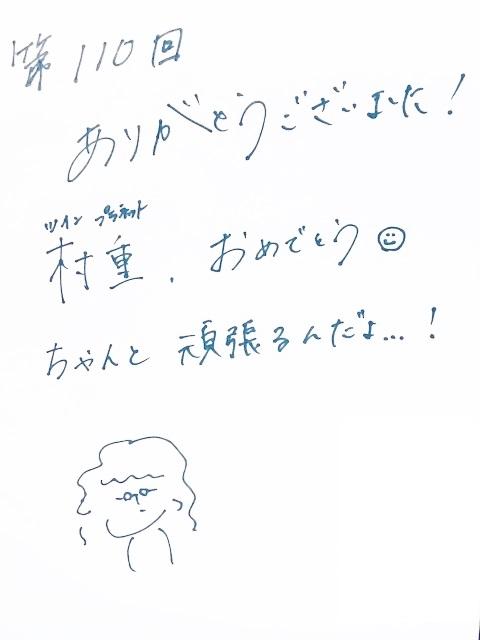 第110回
ありがとうございました!
ツインプラネット
村重、おめでとう
ちゃんと頑張るんだよ...!